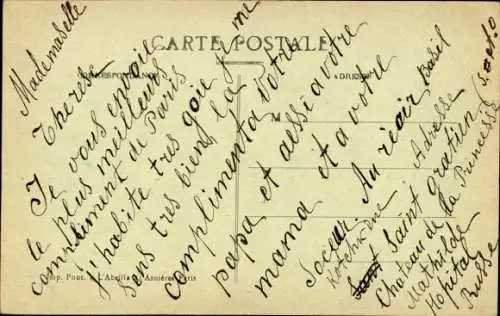 CARTE POSTALE
CORRESPONDANCE
ADRESSE
M
Mademoiselle
Therese
Je vous envoie
le plus meilleurs
compliment de Paris
J'habite tres gaie je me
sens tres bien la
complimenta votre
papa et aussi a votre
mama et a votre
Au revoir Basil
Kotchurine
Adresse
Saint Gratien S. et O.
Chateau de la Princesse
Mathilde
Hopital
Russe
Imp. Phot. L'Abeille Asnières Paris